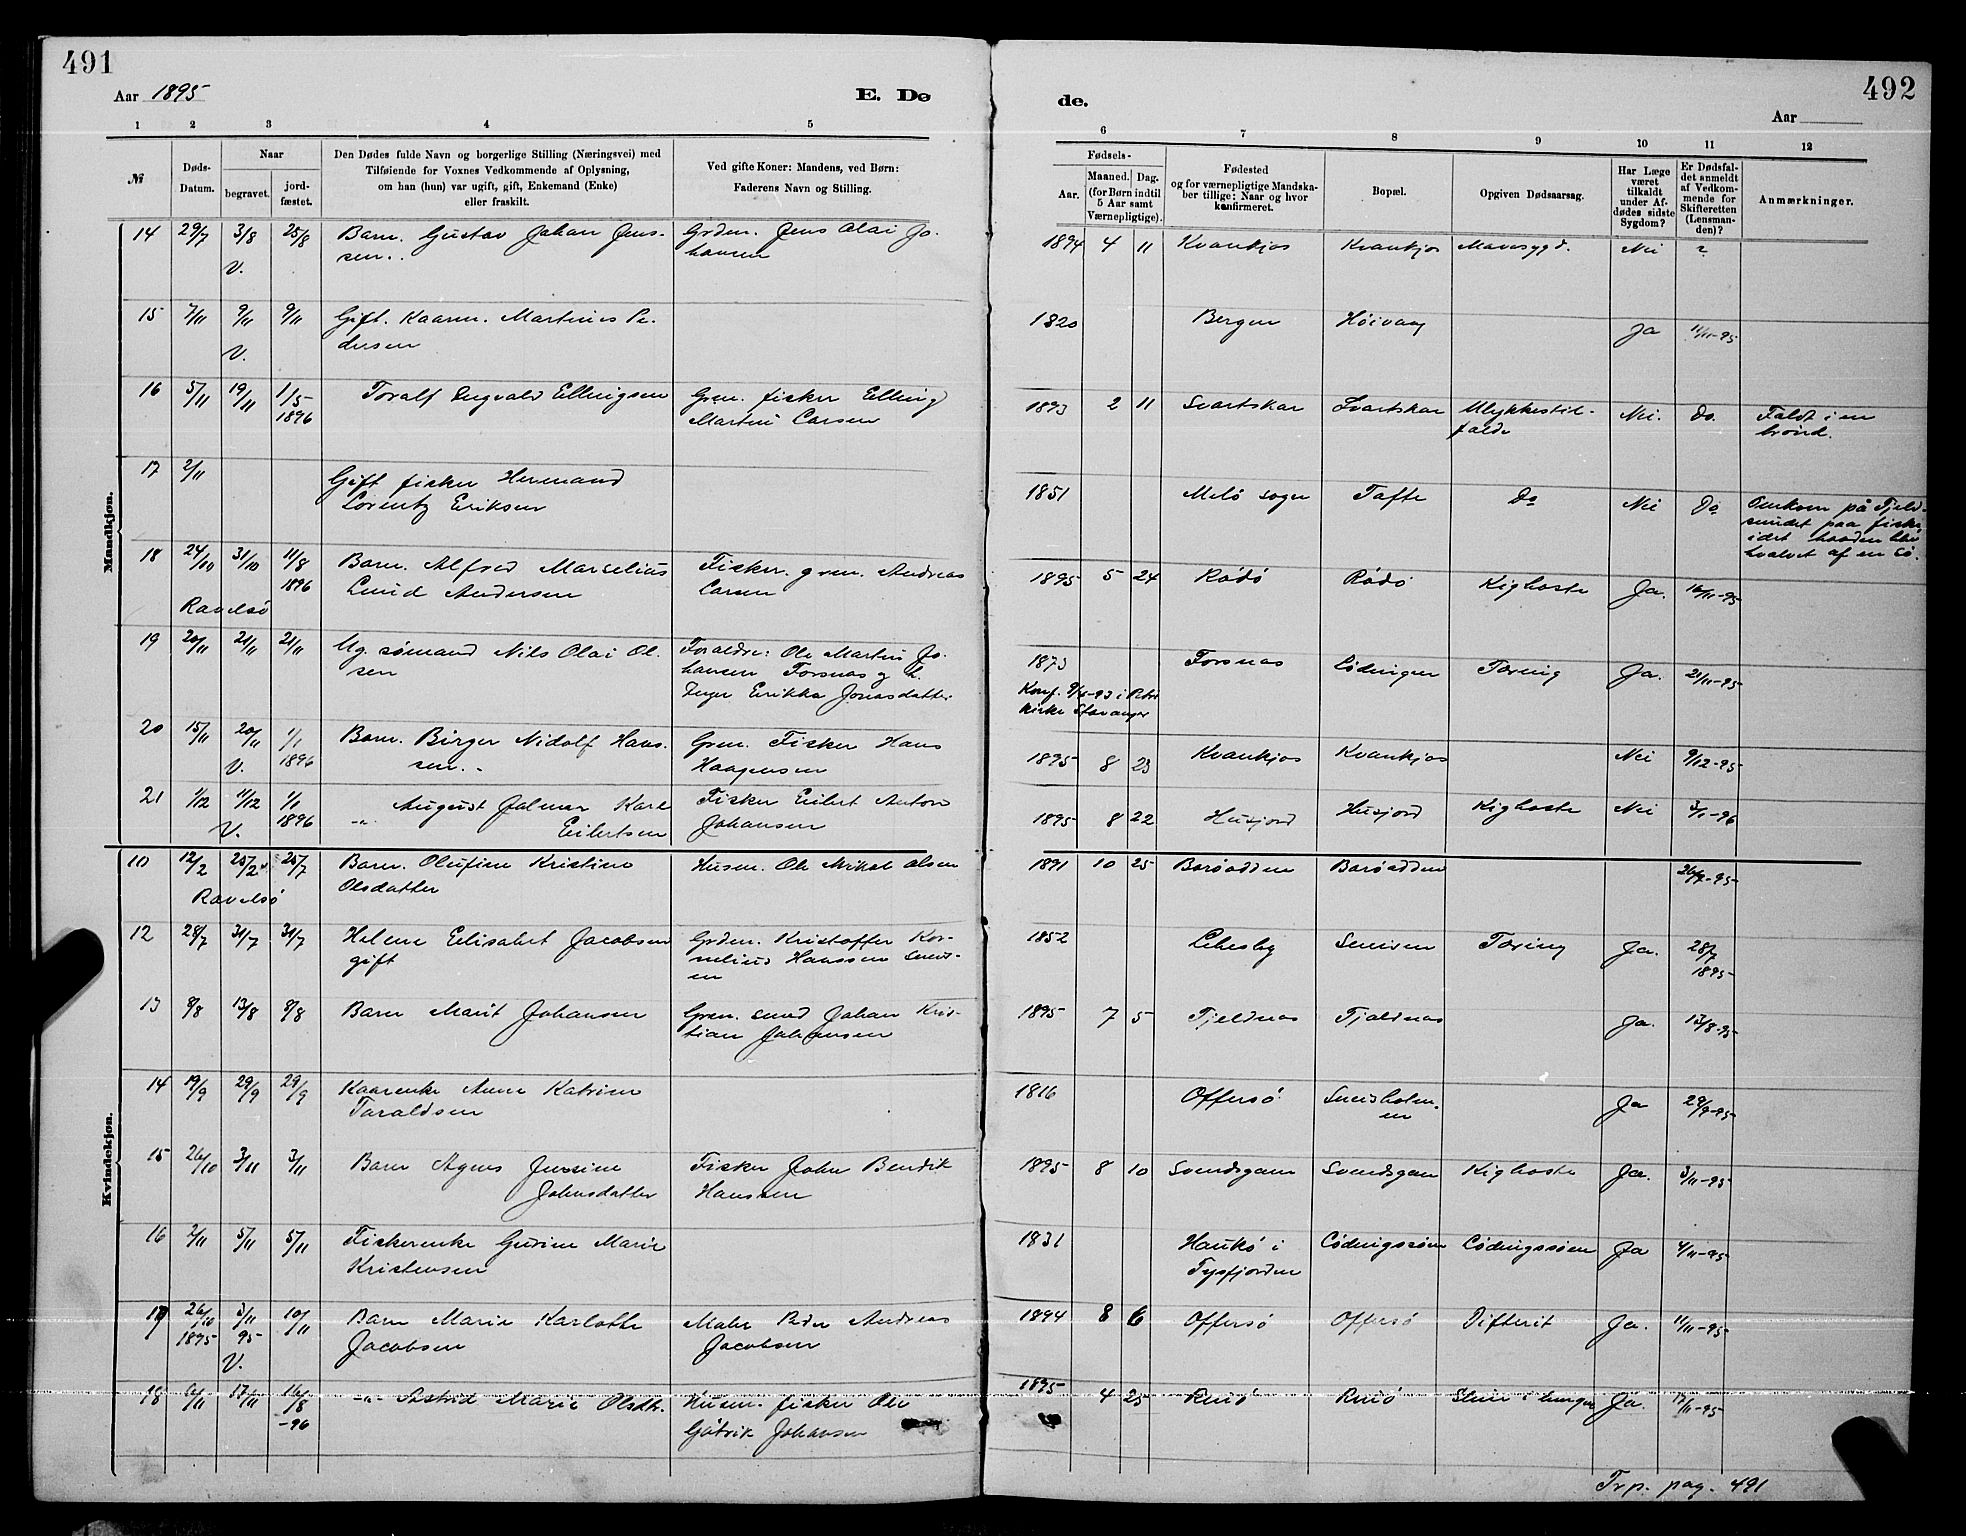 491
Aar 1895
E. Dø
1 2 3 4 5
№
Døds-
Datum.
Naar
begravet.
jord-
fæstet.
Den Dødes fulde Navn og borgerlige Stilling (Næringsvei) med
Tilføiende for Voxnes Vedkommende af Oplysning,
om han (hun) var ugift, gift, Enkemand (Enke)
eller fraskilt.
Ved gifte Koner: Mandens, ved Børn:
Faderens Navn og Stilling.
Mandkjøn.
14 29/7 3/8 25/8 Barn. Gustav Johan Jens- Grdm. Jens Olai Jo-
V. sen.. hansen
15 7/11 9/11 9/11 Gift. Kaarm. Martinus Pe-
V. dersen
16 5/11 19/11 1/5 Toralf Ingvald Ellingsen Grm. fisker Elling
1896 Martin Larsen
17 2/11 Gift fisker Hermand
Lorentz Eriksen
18 24/10 31/10 11/8 Barn. Alfred Marselius Fisker. grm. Andreas
1896 Lund Andersen Larsen
Ravelsø
19 20/11 21/11 21/11 Ug. sømand Nils Olai Ol- Foraldre: Ole Martin Jo-
sen hansen Forsnas og h.
Inger Erikka Jonasdatter
20 15/11 20/11 1/1 Barn. Birger Nidolf Hans- Grm. Fisker Hans
V. 1896 sen.. Haagensen
21 1/12 11/12 1/1 -"- August Jalmar Karl Fisker Eilert Anton
V. 1896 Eilertsen Johansen
Kvindekjøn.
10 12/2 25/2 25/7 Barn. Olufine Kristine Husm. Ole Mikal Olsen
Ravelsø Olsdatter
12 28/7 31/7 31/7 Helene Elisabet Jacobsen Grdm. Kristoffer Kor-
gift nelius Hanssen
13 8/8 13/8 8/8 Barn Marit Johansen Grm. smed Johan Kris-
tian Johansen
14 19/9 29/9 29/9 Kaarenke Anne Katrine
Taraldsen
15 26/10 3/11 3/11 Barn Agnes Jensine Fisker John Bendik
Johnsdatter Hanssen
16 2/11 5/11 5/11 Fiskerenke Gurine Marie
Kristensen
17 26/10 3/11 10/11 Barn Marie Karlotte Maler Peder Andreas
1895 95 Jacobsen Jacobsen
V.
18 6/11 17/11 16/8 -"- Astrid Marie Olsdtr. Husm. fisker Ole
-96 Gåtrik Johansen
492
de.
Aar
6 7 8 9 10 11 12
Fødsels-
Aar.
Maaned. Dag.
(for Børn indtil
5 Aar samt
Værnepligtige).
Fødested
og for værnepligtige Mandska-
ber tillige: Naar og hvor
konfirmeret.
Bopæl.
Opgiven Dødsaarsag.
Har Læge
været
tilkaldt
under Af-
dødes sidste
Sygdom?
Er Dødsfal-
det anmeldt
af Vedkom-
mende for
Skifteretten
(Lensman-
den)?
Anmærkninger.
1894 4 11 Kvankjos Kvankjos Mavesygd. Nei ?
1820 Bergen Høivaag Ja 11/11-95
1893 2 11 Svartskar Svartskar Ulykkestil- Nei. Do. Faldt i en
falde brønd.
1851 Melö sogn Tafte Do Nei Do Omkom på Tjeld-
sundet paa fiske,
idet baaden blev
hvalvet af en sø.
1895 5 24 Rödö Rödö Kighoste Ja. 16/11-95
1873 Forsnas Lødingen Tæring Ja. 21/11-95
Konf. 9/4-93 i Petri
kirke Stavanger
1895 8 23 Kvankjos Kvankjos Nei 9/12-95
1895 8 22 Husjord Husjord Kighoste Nei 3/1-96
1891 10 25 Barøodden Barøodden 26/7-95
1852 Lebesby Tæring Ja. 28/7
1895
1895 7 5 Tjeldnas Tjeldnas Ja. 13/8-95
1816 Offersö Ja 29/9-95
1895 8 10 Svendsgam Svendsgam Kighoste Ja. 3/11-95
1831 Haukö i Lødingssøen Lødingssøen Ja 4/11-95
Tysfjorden
1894 8 6 Offersö Offersö Difterit Ja. 11/11-95
1895 4 25 Rinö Rinö Slim i lunger Ja. 17/11-95
Trp. pag. 491